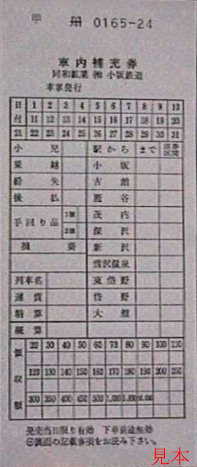 甲 册 0165-24
車内補充券
同和鉱業 ㈱ 小坂鉄道
車掌発行
日 1 2 3 4 5 6 7 8 9 10
付 11 12 13 14 15 16 17 18 19 20
21 22 23 24 25 26 27 28 29 30 31
小児 駅から まで
乗越 小坂
紛失 古館
後払 雪谷
手回り品 1個 茂内
2個 深沢
新沢
雪沢温泉
列車名 東岱野
運賃 岱野
精算 大館
概算
領 20 30 40 50 60 70 80 90 100 110
収 120 130 140 150 160 170 180 190 200 250
額 300 350 400 450 500
発売当日限り有効 下車前途無効
裏面の記載事項をお読み下さい。
見本